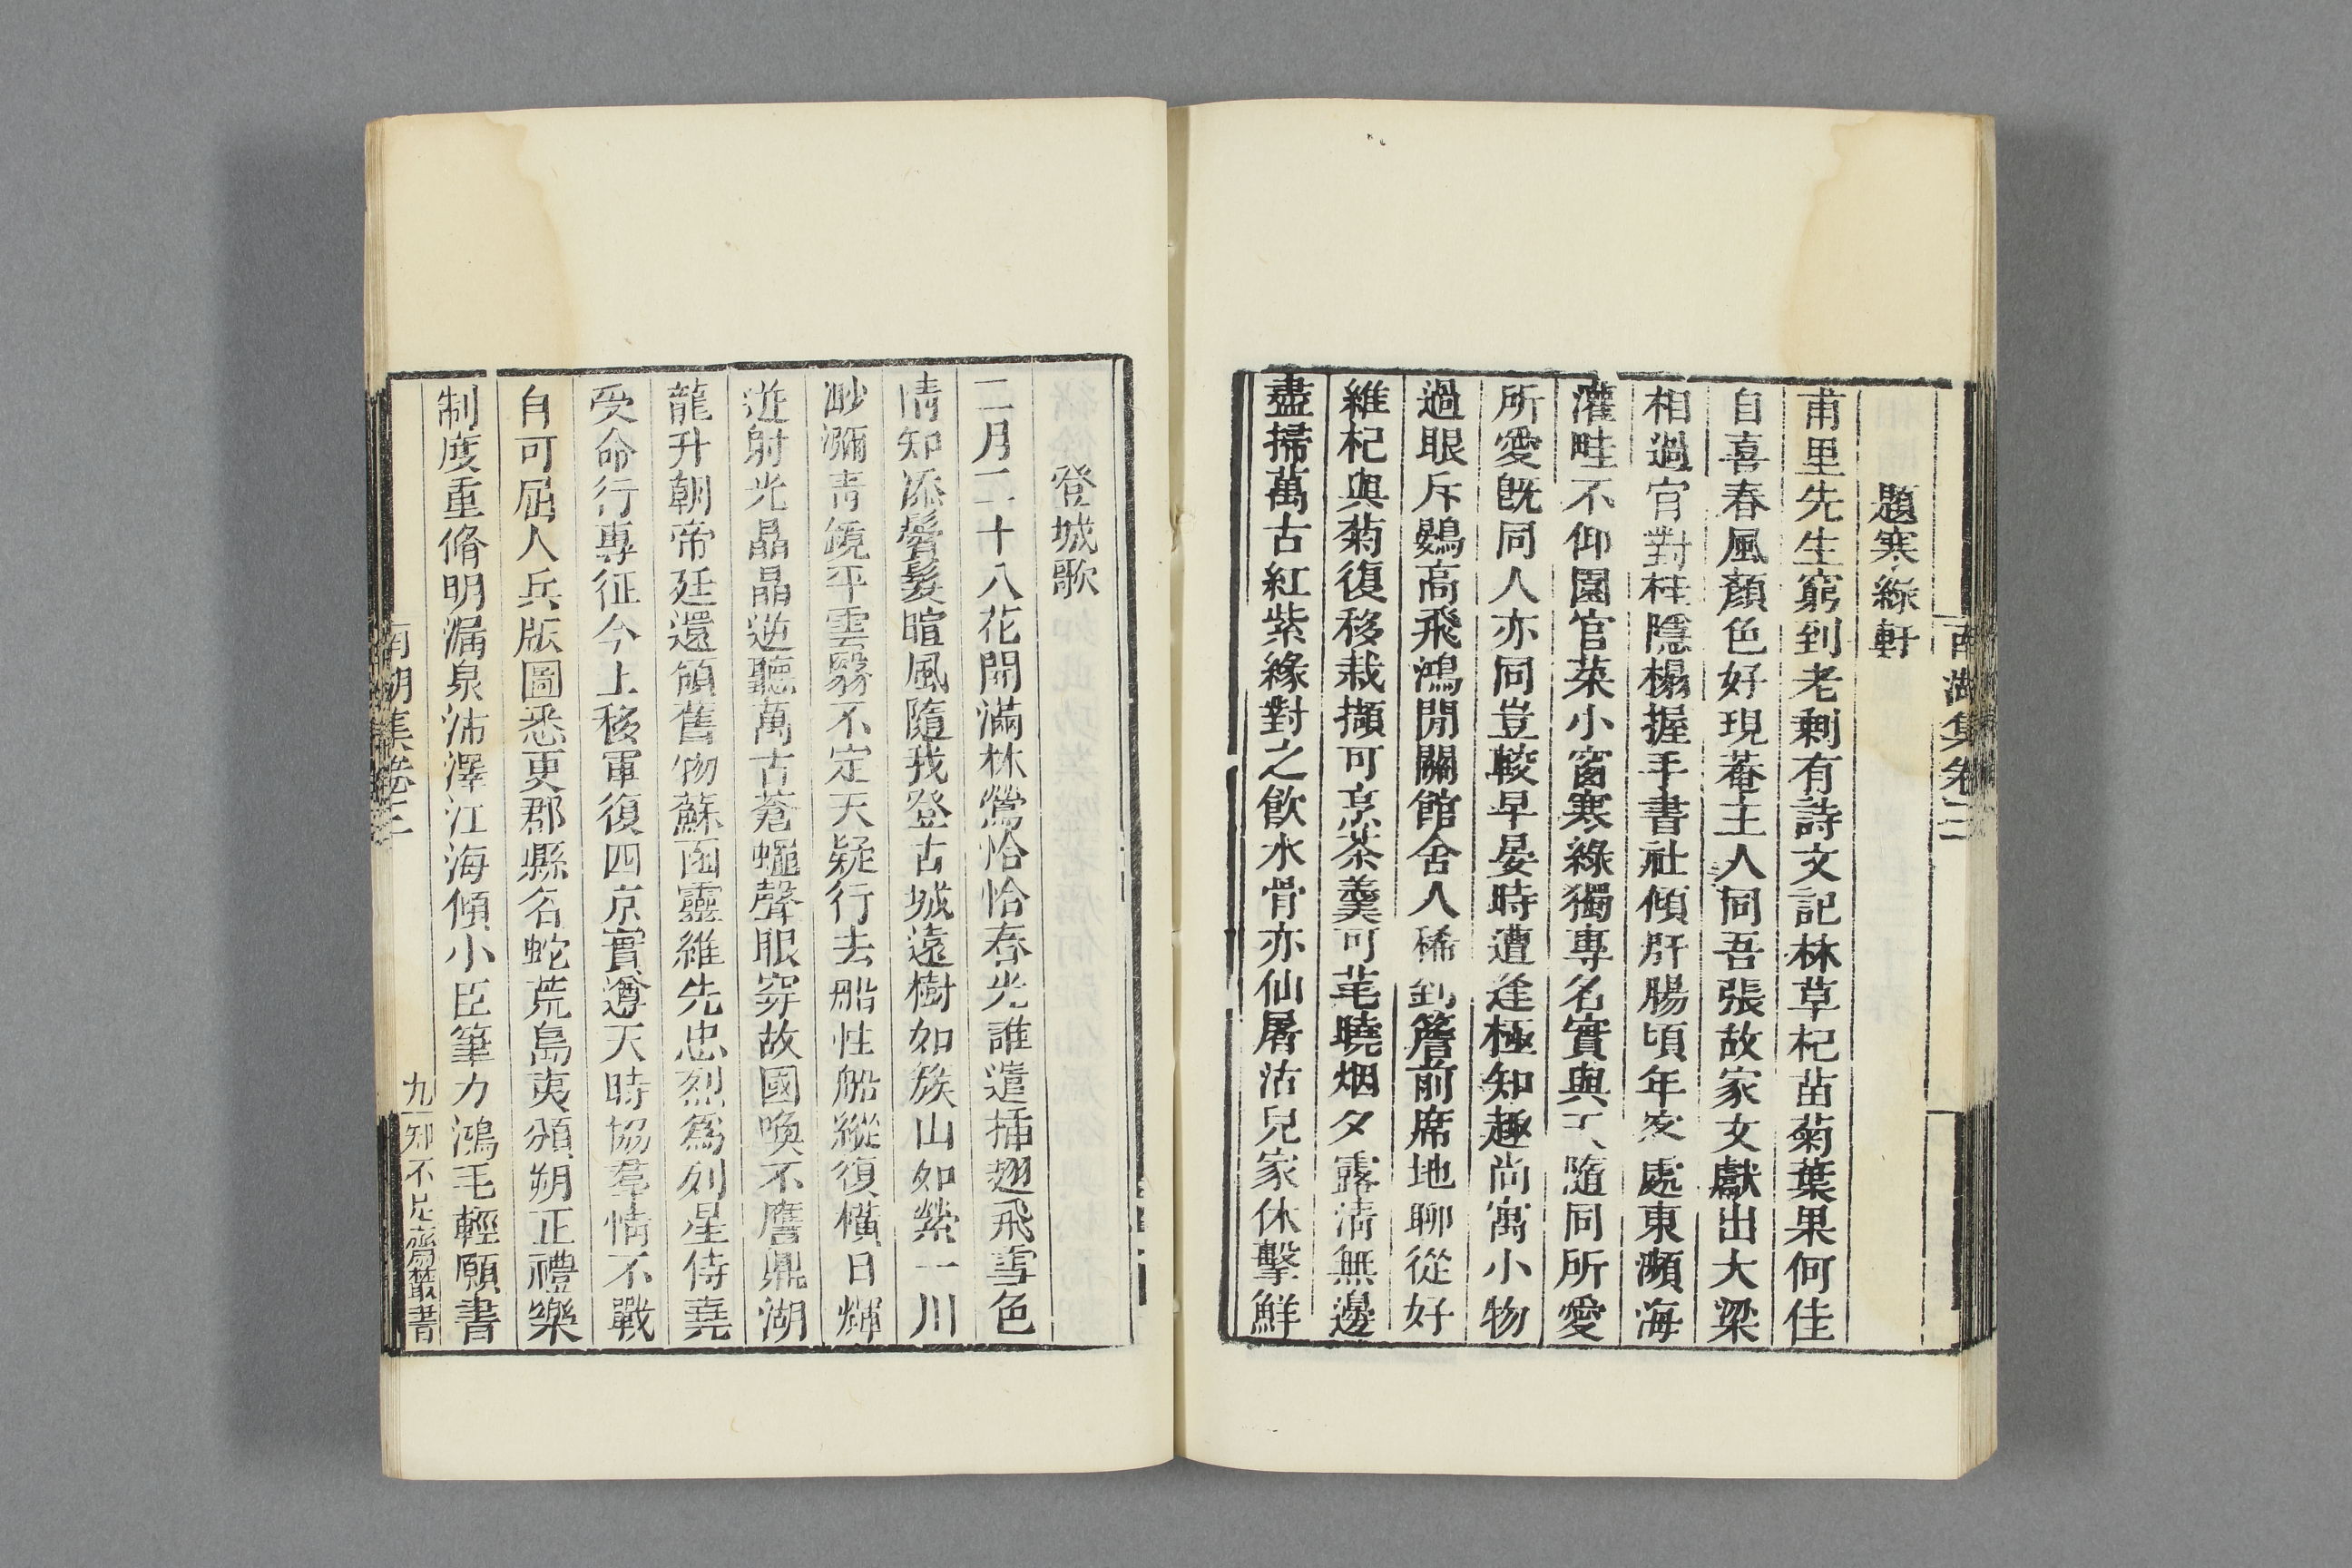 南湖集卷三
題寒綠軒
甫里先生窮到老剩有詩文記林草杞苗菊葉果何佳
自喜春風顏色好現菴主人同吾張故家文獻出大梁
相過官對桂隱榻握手書社傾肝腸頃年家處東瀕海
灌畦不仰園官菜小窗寒綠獨專名實與天隨同所愛
所愛旣同人亦同豈較早晏時遭逢極知趣尚寓小物
過眼斥鷃高飛鴻閒闢館舍人稀到簷前席地聊從好
維杞與菊復移栽擷可烹茶羹可芼曉烟夕露淸無邊
盡掃萬古紅紫緣對之飮水骨亦仙屠沽兒家休擊鮮
登城歌
二月二十八花開滿林鶯恰恰春光誰遣插翅飛雪色
情知添鬢髮暄風隨我登古城遠樹如簇山如縈一川
渺瀰靑鏡平雲翳不定天疑行去船性船縱復橫日輝
迸射光晶晶逆聽萬古蒼蠅聲眼穿故國喚不譍鼎湖
龍升朝帝廷還頒舊物蘇函靈維先忠烈爲列星侍堯
受命行專征今上移軍復四京實遵天時協羣情不戰
自可屈人兵版圖悉更郡縣名蛇荒島夷頒朔正禮樂
制度重脩明漏泉沛澤江海傾小臣筆力鴻毛輕願書
南湖集卷三
九
知不足齋叢書